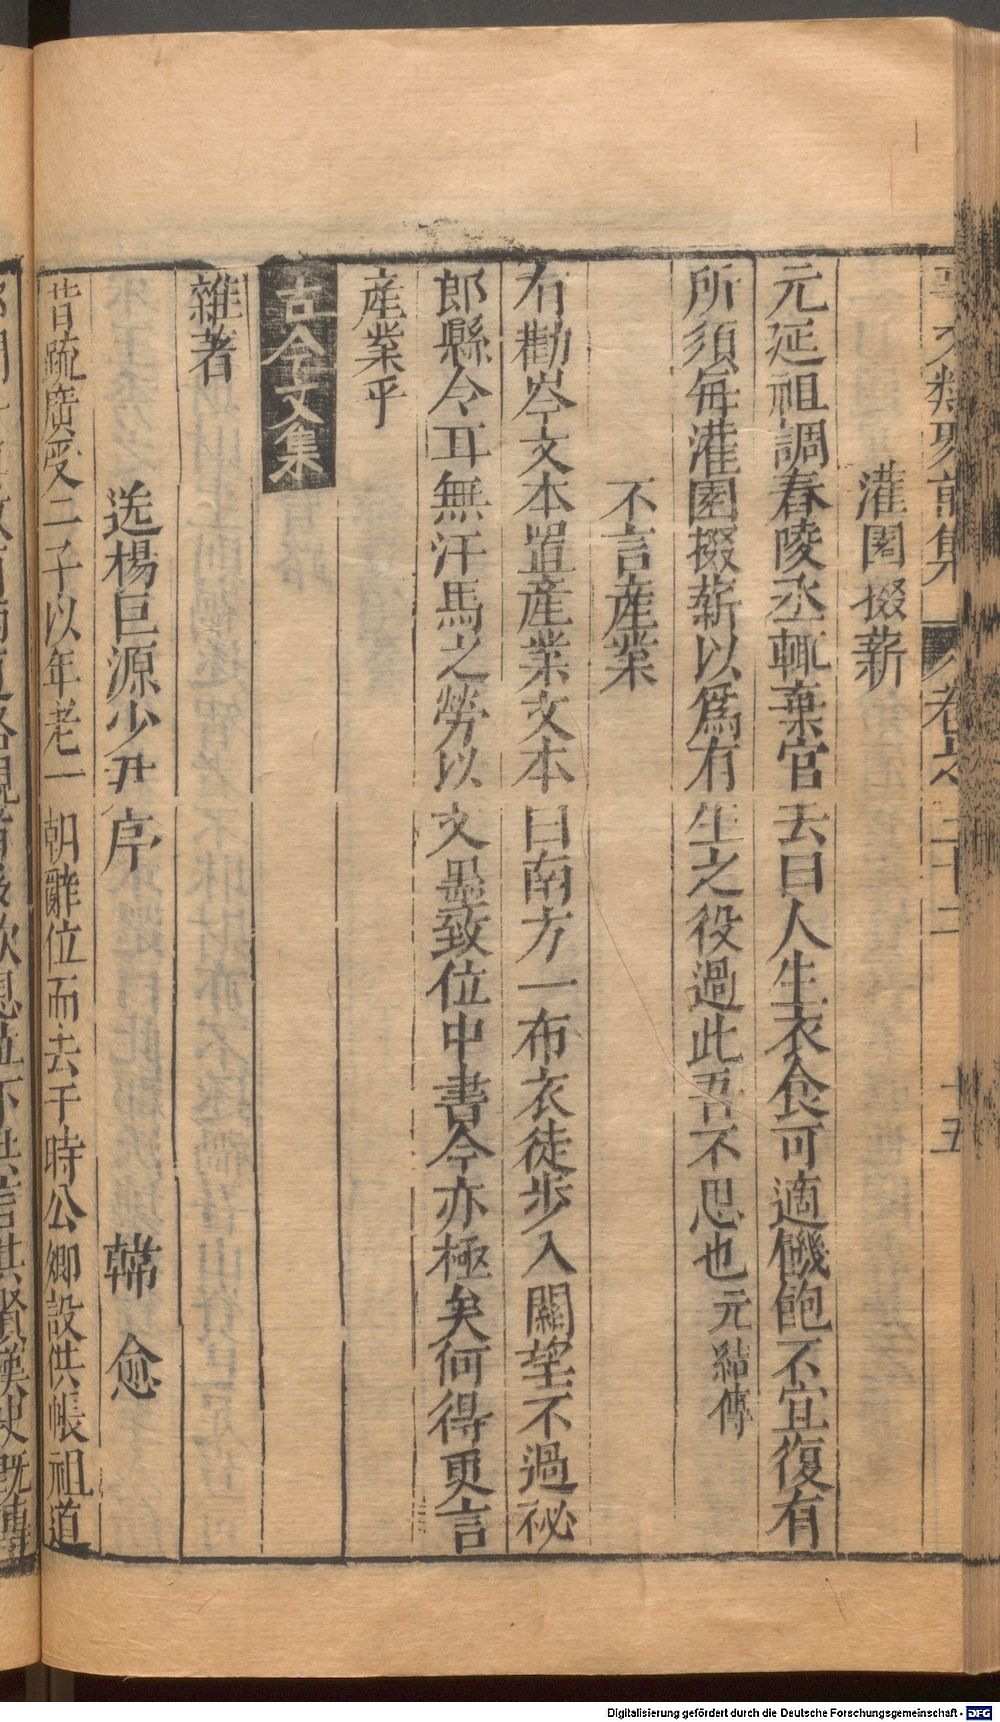 事文類聚前集 卷之三十二 十五
灌園掇薪
元延祖調舂陵丞輒棄官去曰人生衣食可適飢飽不宜復有
所須每灌園掇薪以爲有生之役過此吾不思也元結傳
不言產業
有勸岑文本置產業文本曰南方一布衣徒步入關望不過祕
郎縣令耳無汗馬之勞以文墨致位中書令亦極矣何得更言
產業乎
古今文集
雜著
送楊巨源少尹序 韓愈
昔疏廣受二子以年老一朝辭位而去于時公卿設供帳祖道
Digitalisierung gefördert durch die Deutsche Forschungsgemeinschaft - DFG